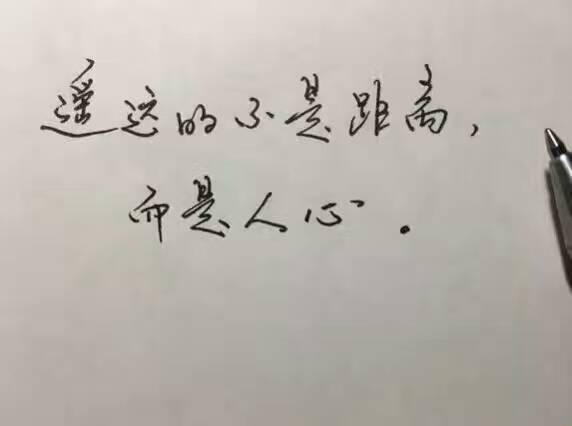 遥远的不是距离，
而是人心．